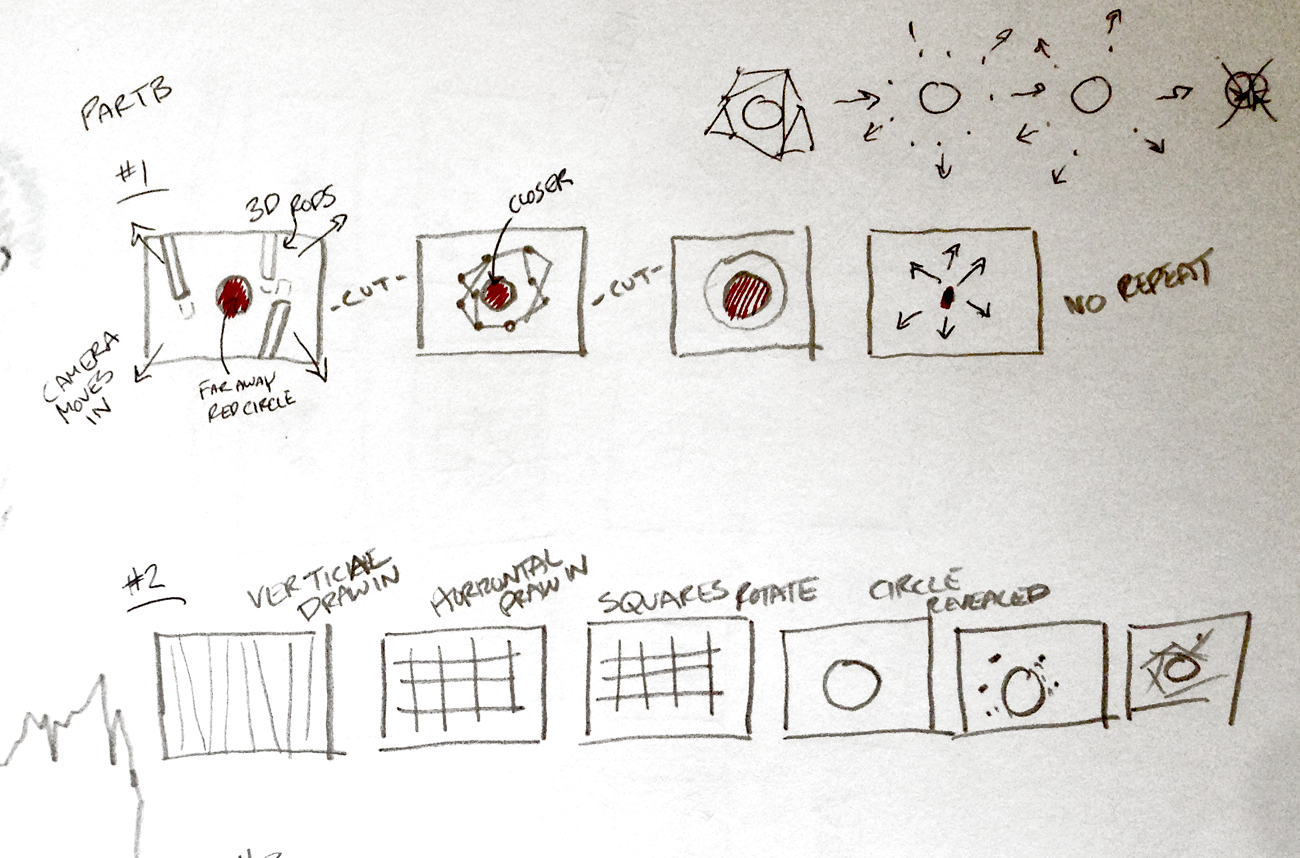 PART B
#1
3D RODS
CLOSER
-CUT-
-CUT-
NO REPEAT
CAMERA
MOVES
IN
FAR AWAY
RED CIRCLE
#2
VERTICIAL
DRAW IN
HORIZONTAL
DRAW IN
SQUARES ROTATE
CIRCLE
REVEALED